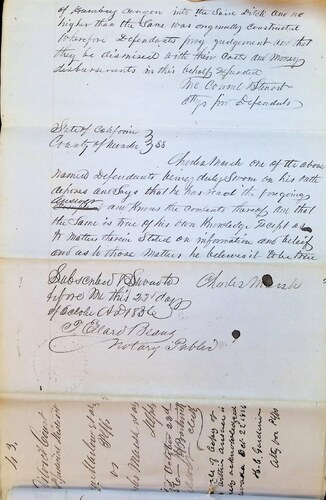 of Humbug Canyon into the Said Ditch and no
higher than the Same was originally constructed
Wherefore Defendants pray judgement and that
they be dismissed with their Costs and
disbursements in this behalf expended
McConnel &
Attys for Defendants
State of California
County of Nevada } SS
Charles Marsh one of the above
Named Defendants being duly Sworn on his oath
deposes and Says that he has read the foregoing
Answer and Knows the contents thereof and that
the Same is true of his own Knowledge Except as
to matters therein Stated on information and belief
and as to those Matters he believes it to be true
Subscribed & Sworn to
before Me this 22d day
of October A.D. 1856
Charles Marsh
Notary Public
13.
District Court
vs
Marsh et al
Filed October 22d
Clerk
Service of Copy of
within Answer is
hereby acknowledged
Nevada Oct 22 1856
Atty for Plffs